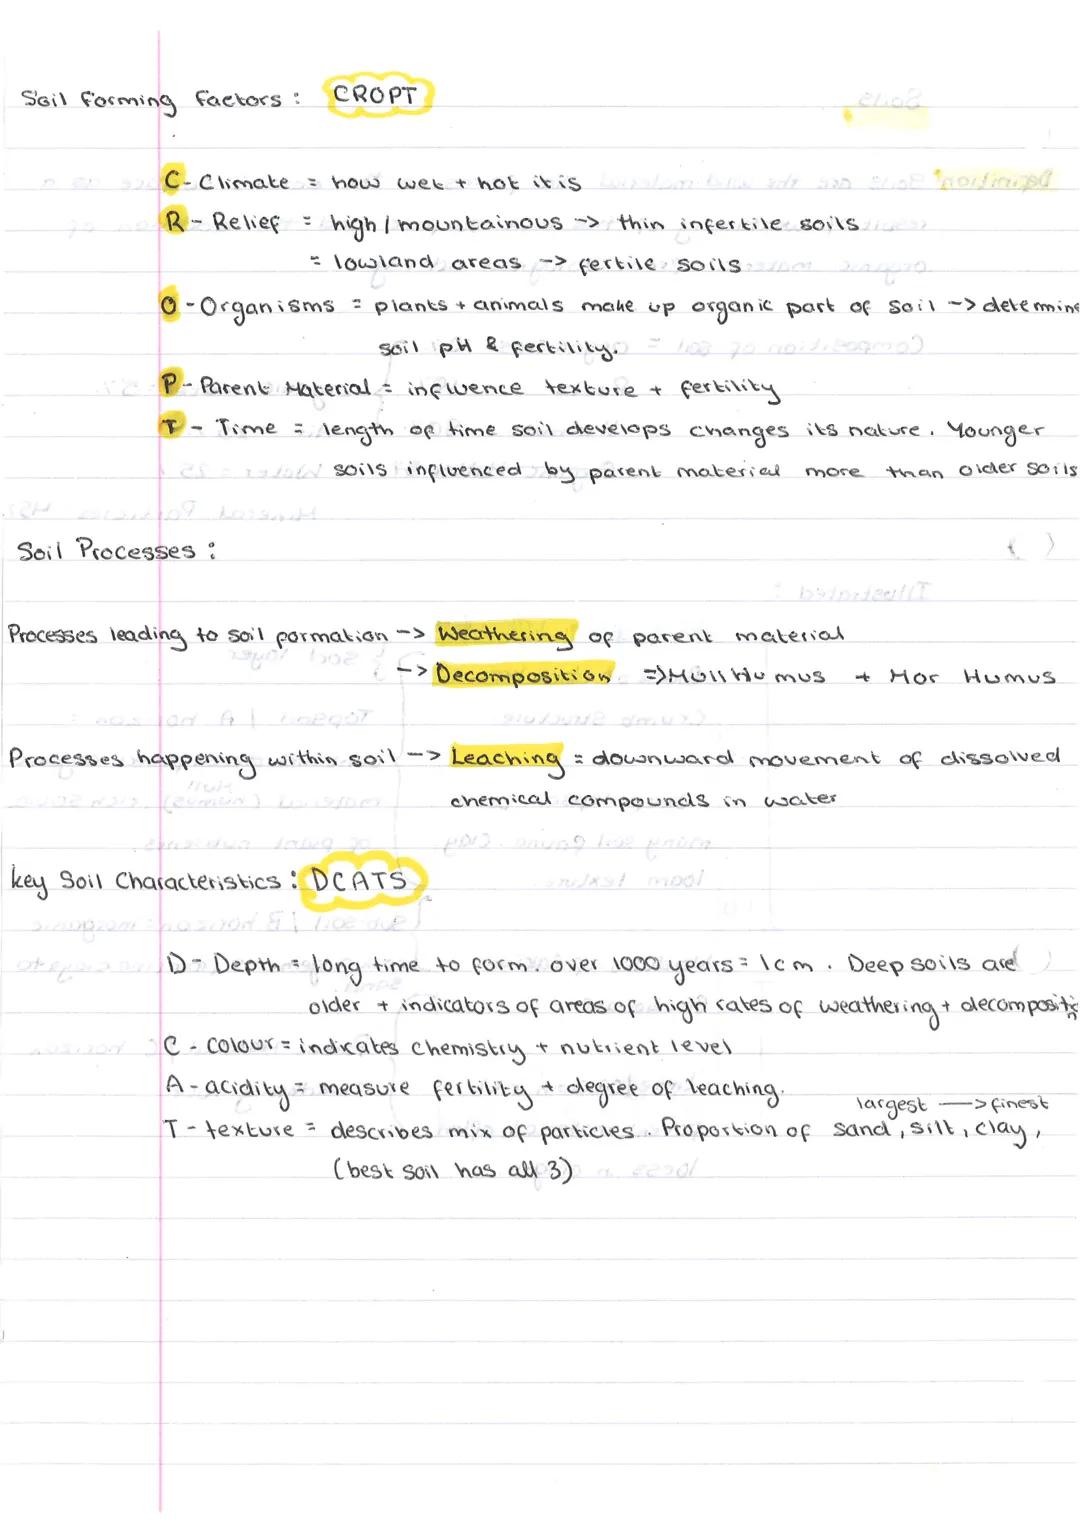 Soil forming factors : CROPT
C - Climate = how wet + hot it is
R - Relief = high / mountainous -> thin infertile soils
= lowland areas -> fertile soils
O - Organisms = plants + animals make up organic part of soil -> determine
soil pH & fertility.
P - Parent Material = influence texture + fertility
T - Time = length of time soil develops changes its nature. Younger
soils influenced by parent material more than older soils
Soil Processes :
Processes leading to soil formation -> Weathering of parent material
-> Decomposition => Mull Humus + Mor Humus
Processes happening within soil -> Leaching = downward movement of dissolved
chemical compounds in water
key Soil Characteristics : DCATS
D - Depth = long time to form. over 1000 years = 1cm. Deep soils are
older + indicators of areas of high rates of weathering + decomposition
C - colour = indicates chemistry + nutrient level
A - acidity = measure fertility + degree of leaching.
largest -> finest
T - texture = describes mix of particles. Proportion of sand, silt, clay,
(best soil has all 3)